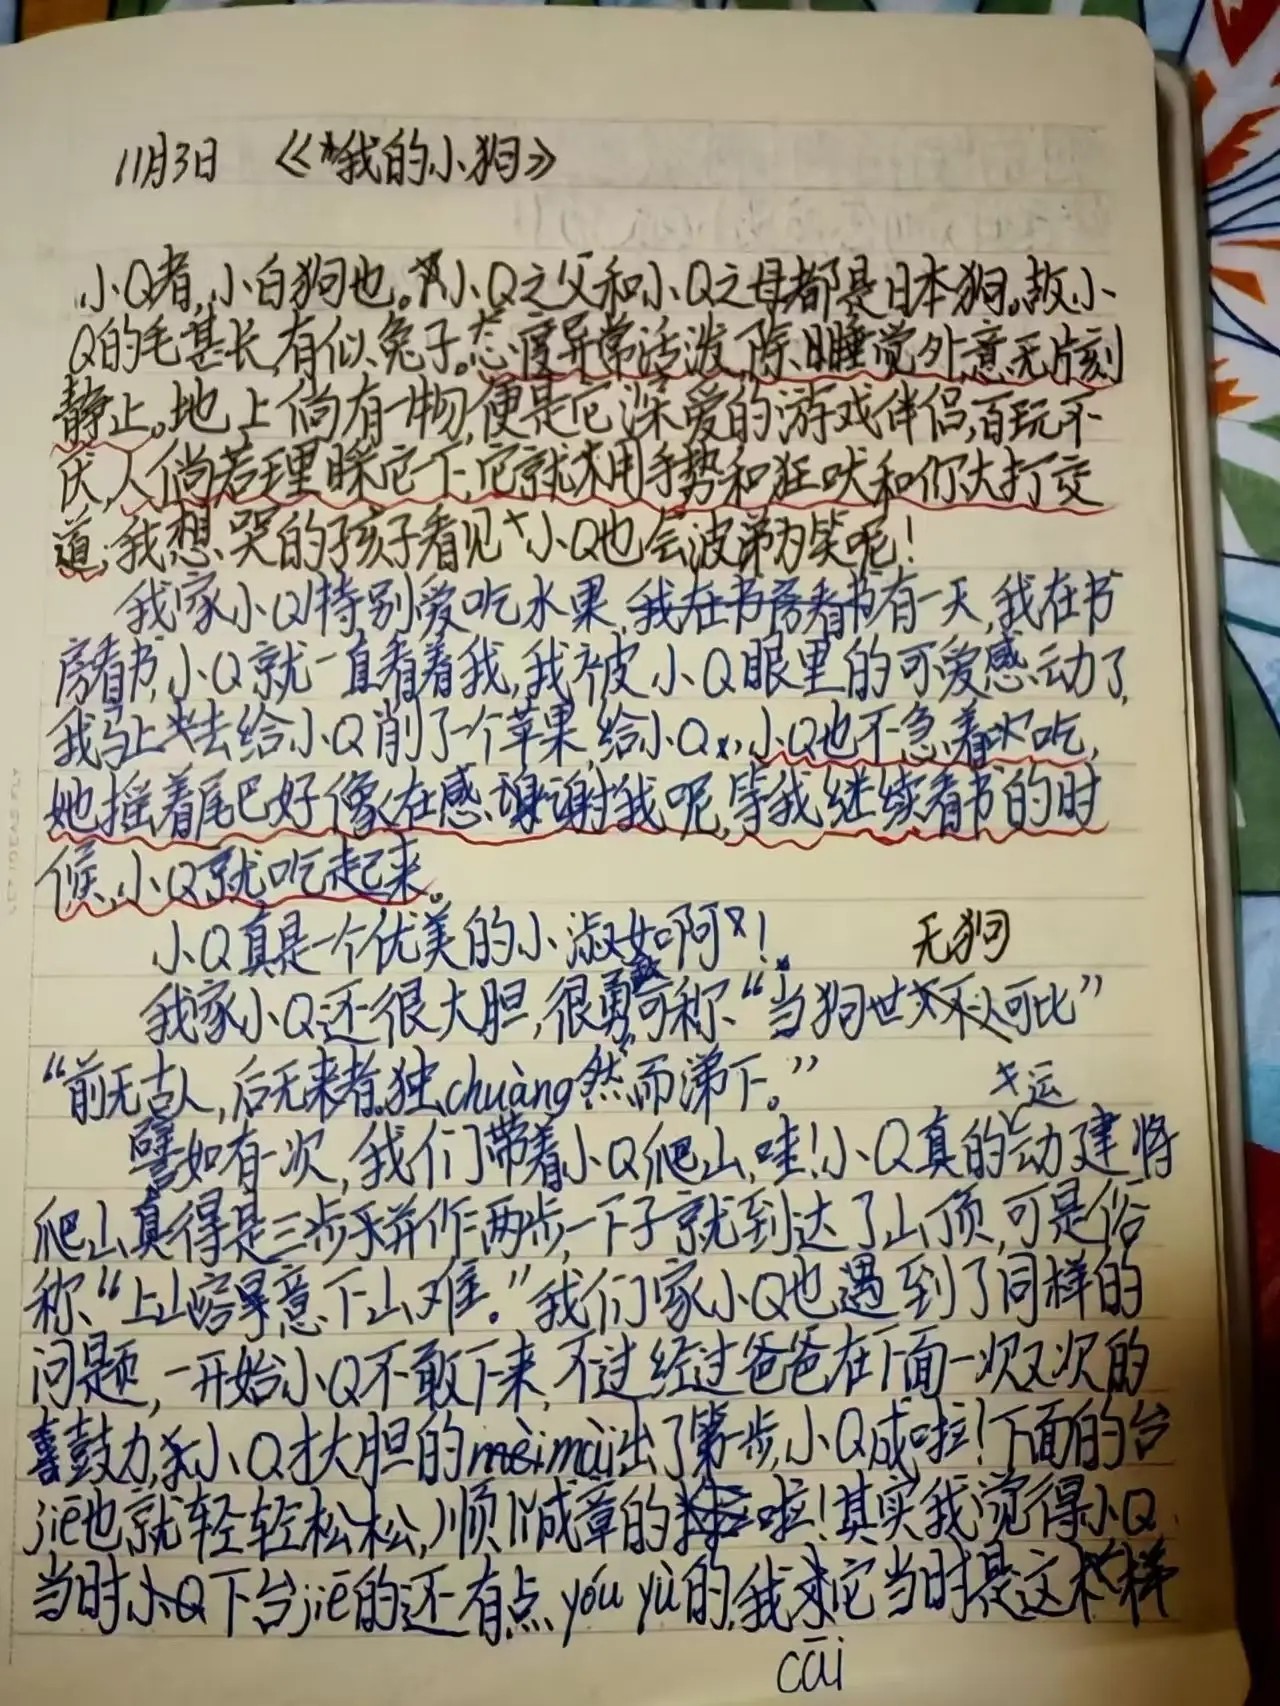 11月3日 《我的小狗》
小Q者,小白狗也。小Q之父和小Q之母都是日本狗。故小
Q的毛甚长,有似兔子。态度异常活泼,除睡觉外,意无片刻
静止。地上倘有一物,便是它深爱的游戏伴侣,百玩不
厌,人倘若理睬它一下,它就用手势和狂吠和你大打交
道,我想哭的孩子看见小Q也会波涕为笑呢!
我家小Q特别爱吃水果,我在书房看书有一天,我在书
房看书,小Q就一直看着我,我被小Q眼里的可爱感动了,
我马上去给小Q削了一个苹果,给小Q,小Q也不急着吃,
她摇着尾巴好像在感谢我呢,等我继续看书的时
候,小Q就吃起来。
小Q真是一个优美的小淑女啊!
无狗
我家小Q还很大胆,很勇敢可称“当狗世可比”
“前无古人,后无来者。独chuàng然而涕下。”
运
譬如有一次,我们带着小Q爬山,哇!小Q真的动建将
爬山真得是三步并作两步,一下子就到达了山顶,可是俗
称“上山容易下山难。”我们家小Q也遇到了同样的
问题,一开始小Q不敢下来,不过经过爸爸在下面一次又次的
喜鼓力,小Q才大胆的mài出了第一步,小Q成啦!下面的台
jiē也就轻轻松松,顺lǐ成章的啦!其实我觉得小Q
当时小Q下台jiē的还有点yóu yù的,我它当时是这样
cāi